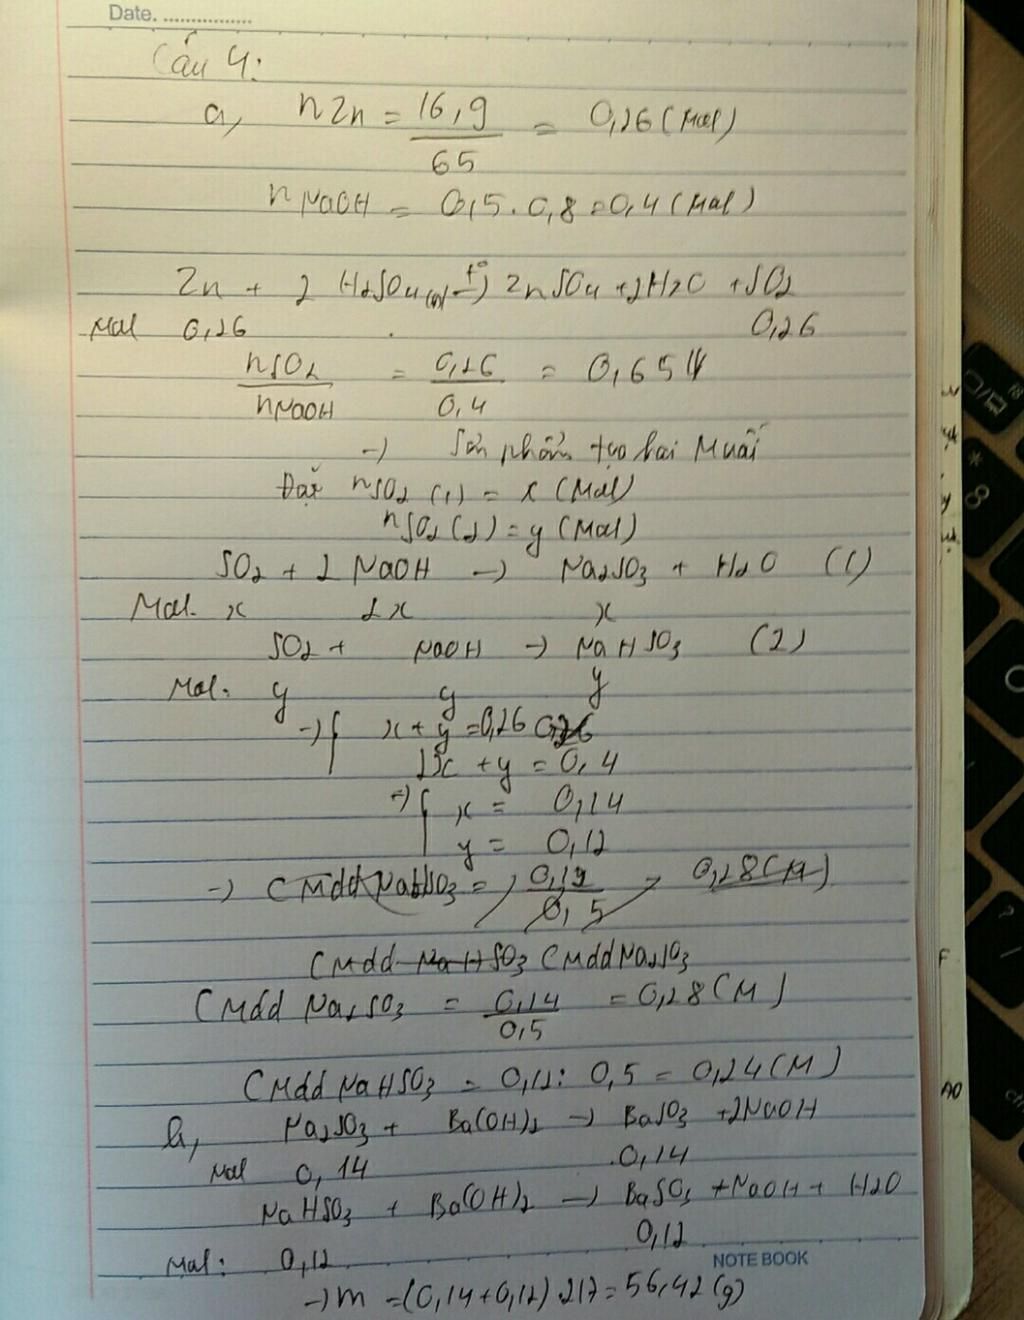 Date. ...............
Câu 4:
a, nZn = 16,9 / 65 = 0,26 (mol)
nNaOH = 0,5 . 0,8 = 0,4 (mol)
Zn + 2 H2SO4 (đ) –t°→ ZnSO4 + 2H2O + SO2
mol 0,26 0,26
nSO2 / nNaOH = 0,26 / 0,4 = 0,65
→ Sản phẩm tạo hai muối
Đặt nSO2 (1) = x (mol)
nSO2 (2) = y (mol)
SO2 + 2 NaOH → Na2SO3 + H2O (1)
mol. x 2x x
SO2 + NaOH → NaHSO3 (2)
mol. y y y
→ { x + y = 0,26
2x + y = 0,4
→ { x = 0,14
y = 0,12
→ CMdd NaHSO3 = 0,5 = 0,28 (M)
CMdd NaHSO3 CMdd Na2SO3
CMdd Na2SO3 = 0,14 / 0,5 = 0,28 (M)
CMdd NaHSO3 = 0,12 : 0,5 = 0,24 (M)
b, Na2SO3 + Ba(OH)2 → BaSO3 + 2NaOH
mol 0,14 0,14
NaHSO3 + Ba(OH)2 → BaSO3 + NaOH + H2O
mol: 0,12 0,12
NOTE BOOK
→ m = (0,14 + 0,12) . 217 = 56,42 (g)